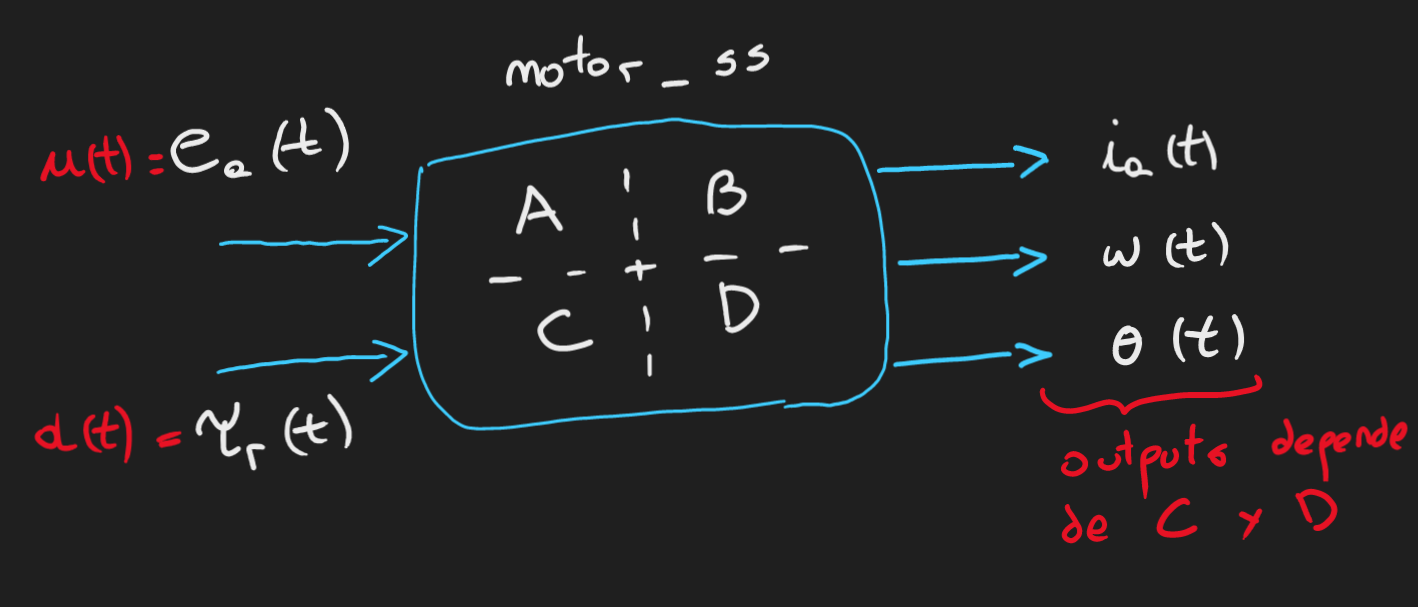 motor_ss
u(t) = ea(t)
d(t) = τr(t)
A B
C D
ia(t)
ω(t)
θ(t)
outputs depende
de C y D